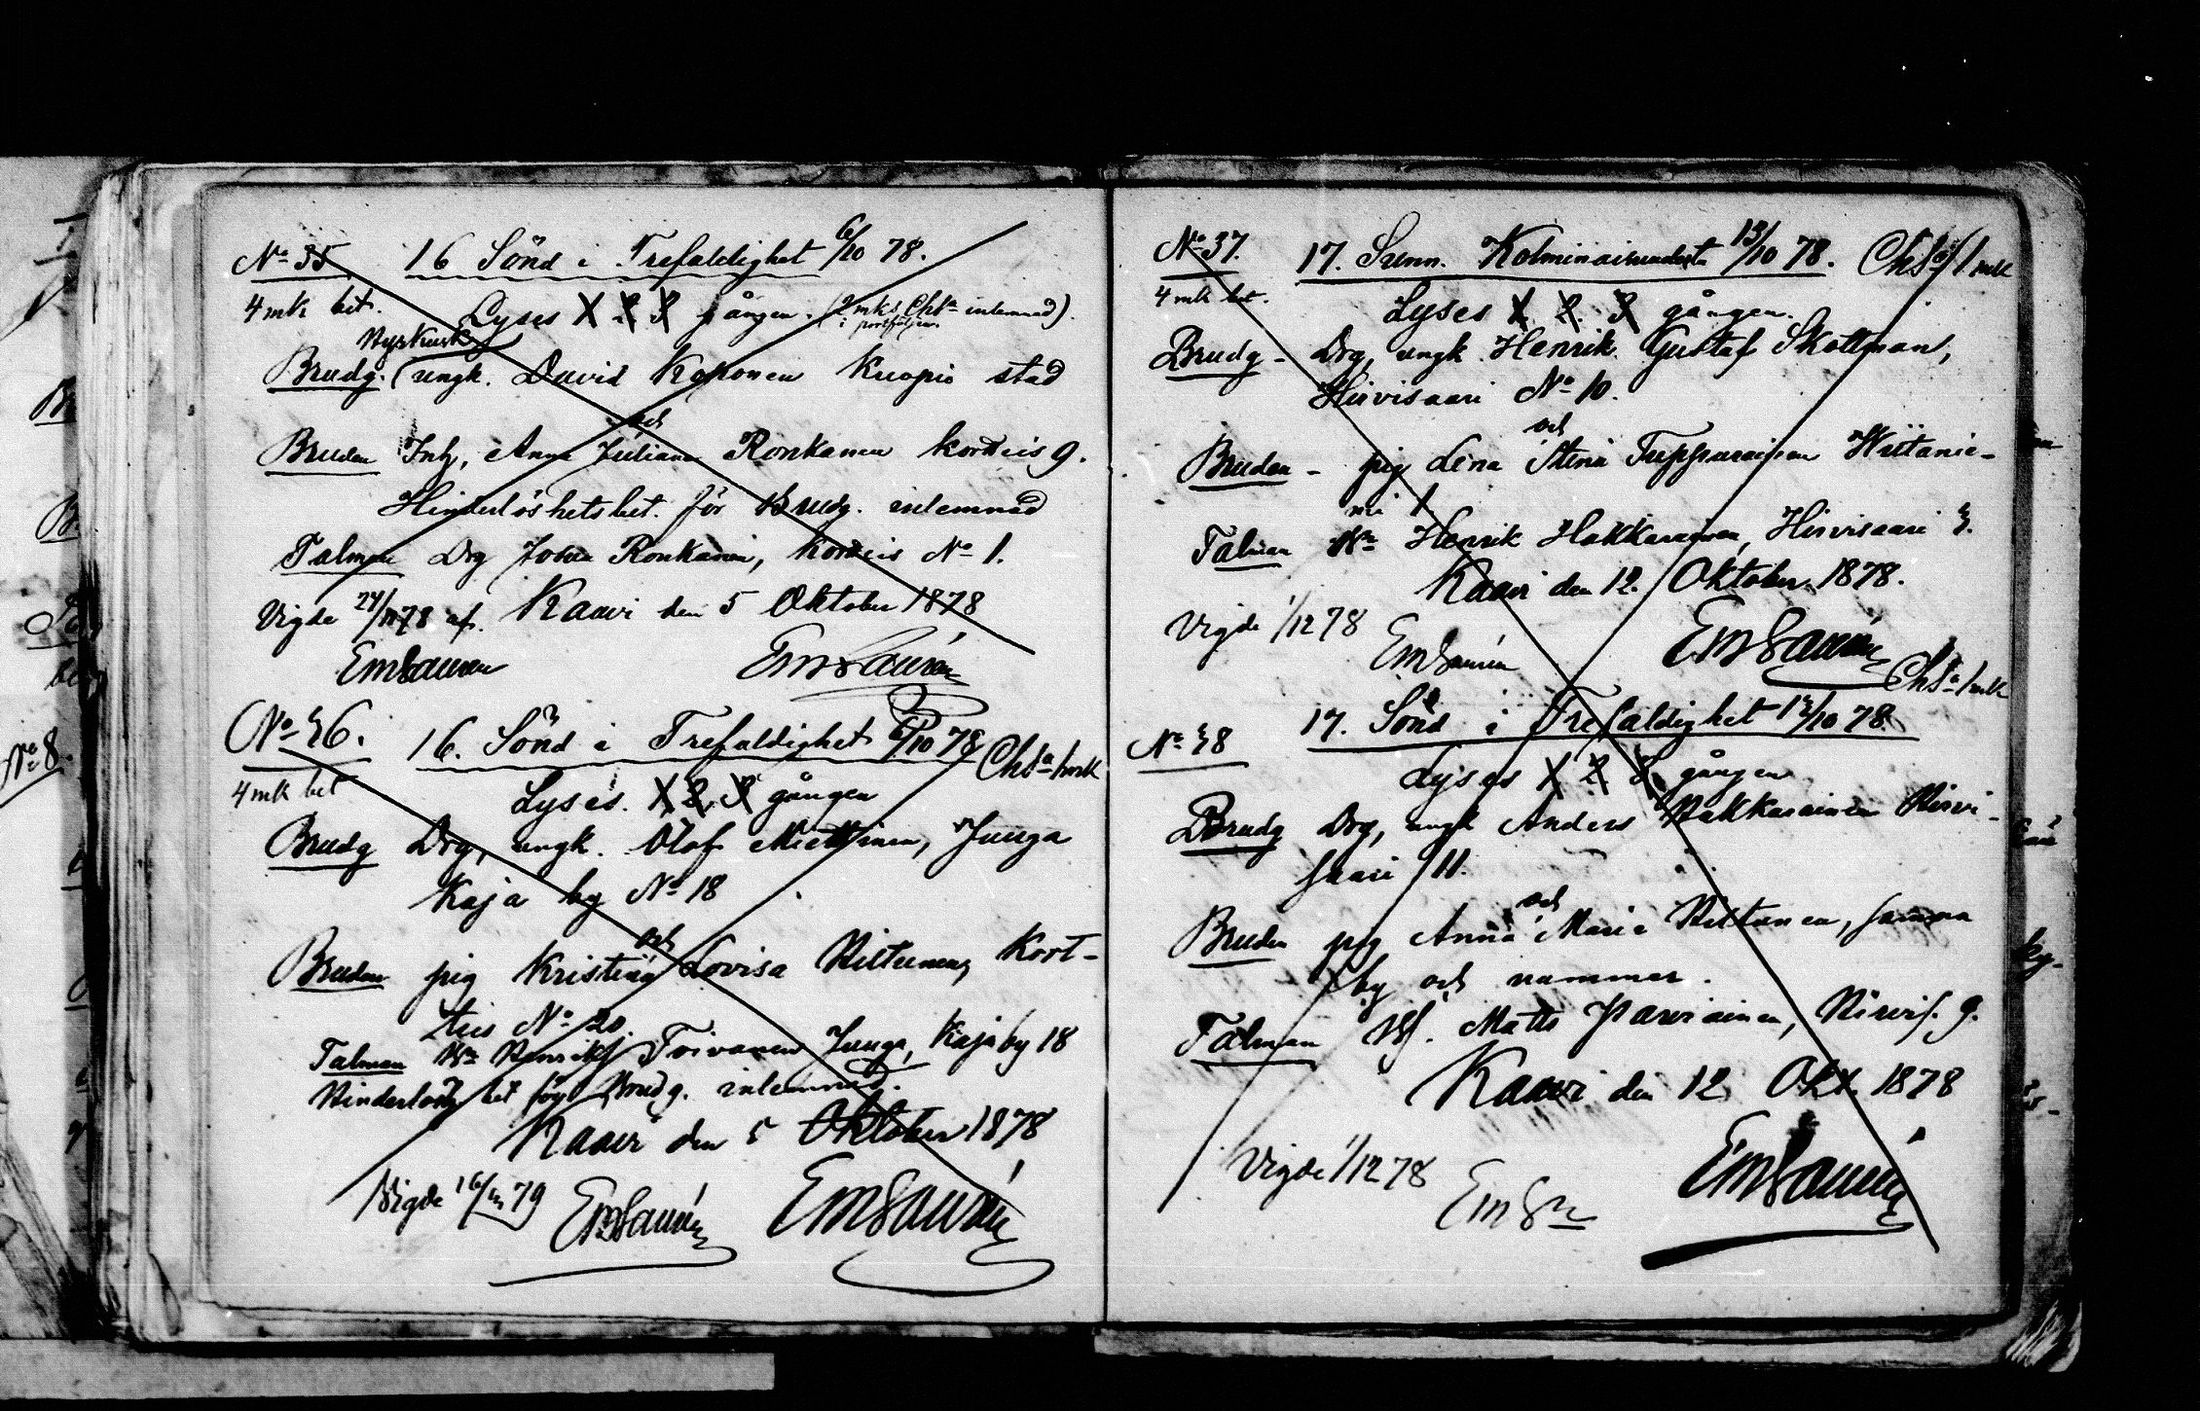 No 35 16 Sönd i Trefaldighet 6/10 78.
4 mk bet. Lyses 1 2 3 gången. (2 mk Chsta inlemnad)
i portföljen.
Hyrkusk
Brudg. ungk. David Kokonen Kuopio stad
och
Bruden Inh. Anna Juliana Ronkanen Kortteis 9.
Hinderlöshetsbet. för Brudg. inlemnad
Talman Drg Johan Ronkanen, Kortteis No 1.
Vigde 24/11 78 af. Kaavi den 5 Oktober 1878
EmSaurén EmSaurén
No 36. 16. Sönd i Trefaldighet 6/10 78 Chsta 1 mk
4 mk bet Lyses. 1 2 3 gången
Brudg Drg, ungk. Olof Miettinen, Juuga
Kaja by No 18
och
Bruden pig Kristina Lovisa Kort-
teis No 20.
Talman Henrik Toivanen Juuga, Kajaby 18
bet för Brudg. inlemnad.
Kaavi den 5 Oktober 1878
Vigde 79 EmSaurén EmSaurén
No 37. 17. Sunn. Kolminaisuudesta 13/10 78. Chsta 1 mk
4 mk bet. Lyses 1 2 3 gången.
Brudg - Drg, ungk Henrik Gustaf Skottman,
Hirvisaari No 10.
och
Bruden - pig Lena Stina Tuppurainen Niitanie-
mi 1
Talman Henrik Hakkarainen, Hirvisaari 3.
Kaavi den 12. Oktober 1878.
Vigde 1/12 78 EmSaurén EmSaurén
Chsta 1 mk
No 38 17. Sönd i Trefaldighet 13/10 78.
Lyses 1 2 3 gången
Brudg Drg, ungk Anders Hakkarainen Hirvi-
saari 11.
och
Bruden pig Anna Maria samma
by och nummer.
Talman Matts Parviainen, Hirvis. 9.
Kaavi den 12 Okt. 1878
Vigde 1/12 78 EmSn EmSaurén
No 8.